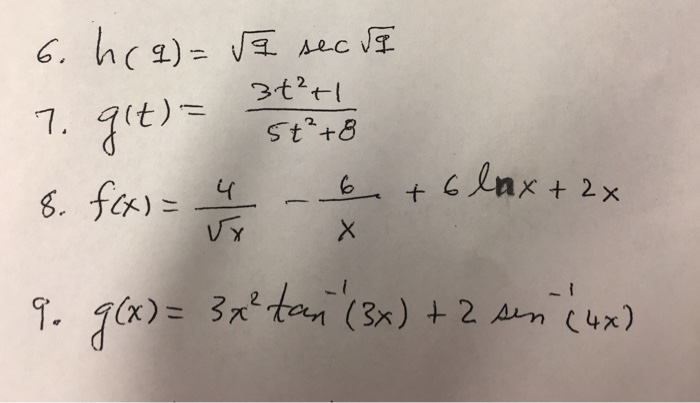 6. h(q) = √q sec √q
7. g(t) = (3t²+1)/(5t²+8)
8. f(x) = 4/√x − 6/x + 6 lnx + 2x
9. g(x) = 3x² tan⁻¹(3x) + 2 sin⁻¹(4x)